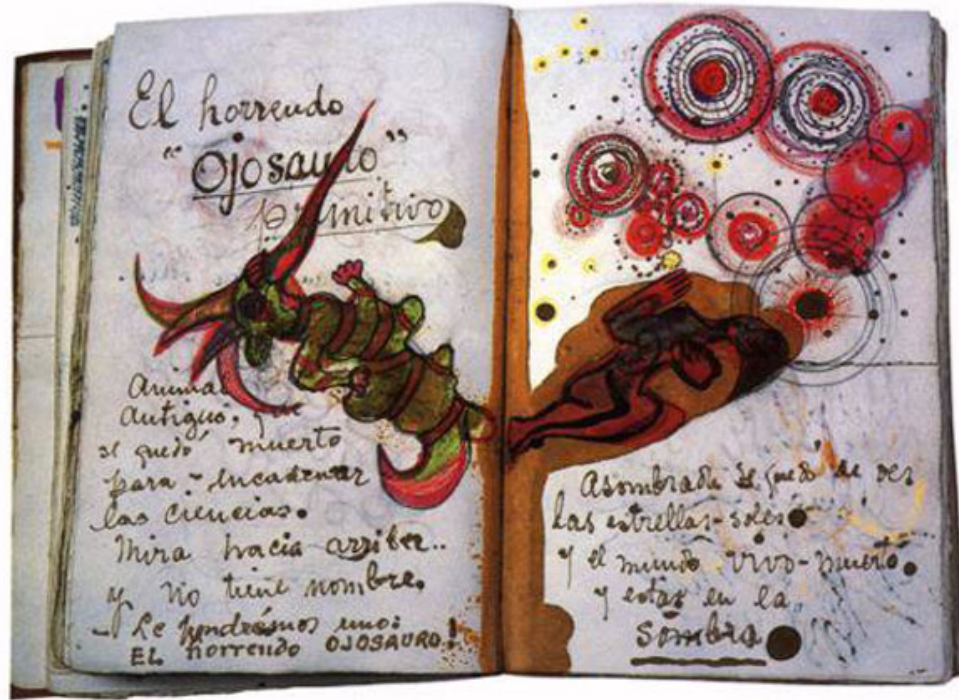 El horrendo
"Ojosauro"
primitivo
Animal
Antiguo, que
se quedó muerto
para - encadenar
las ciencias.
Mira hacia arriba..
y no tiene nombre.
- Le pondremos uno:
EL horrendo OJOSAURO!
Asombrada se quedó de ver
las estrellas-soles
y el mundo vivo-muerto.
y estar en la
sombra